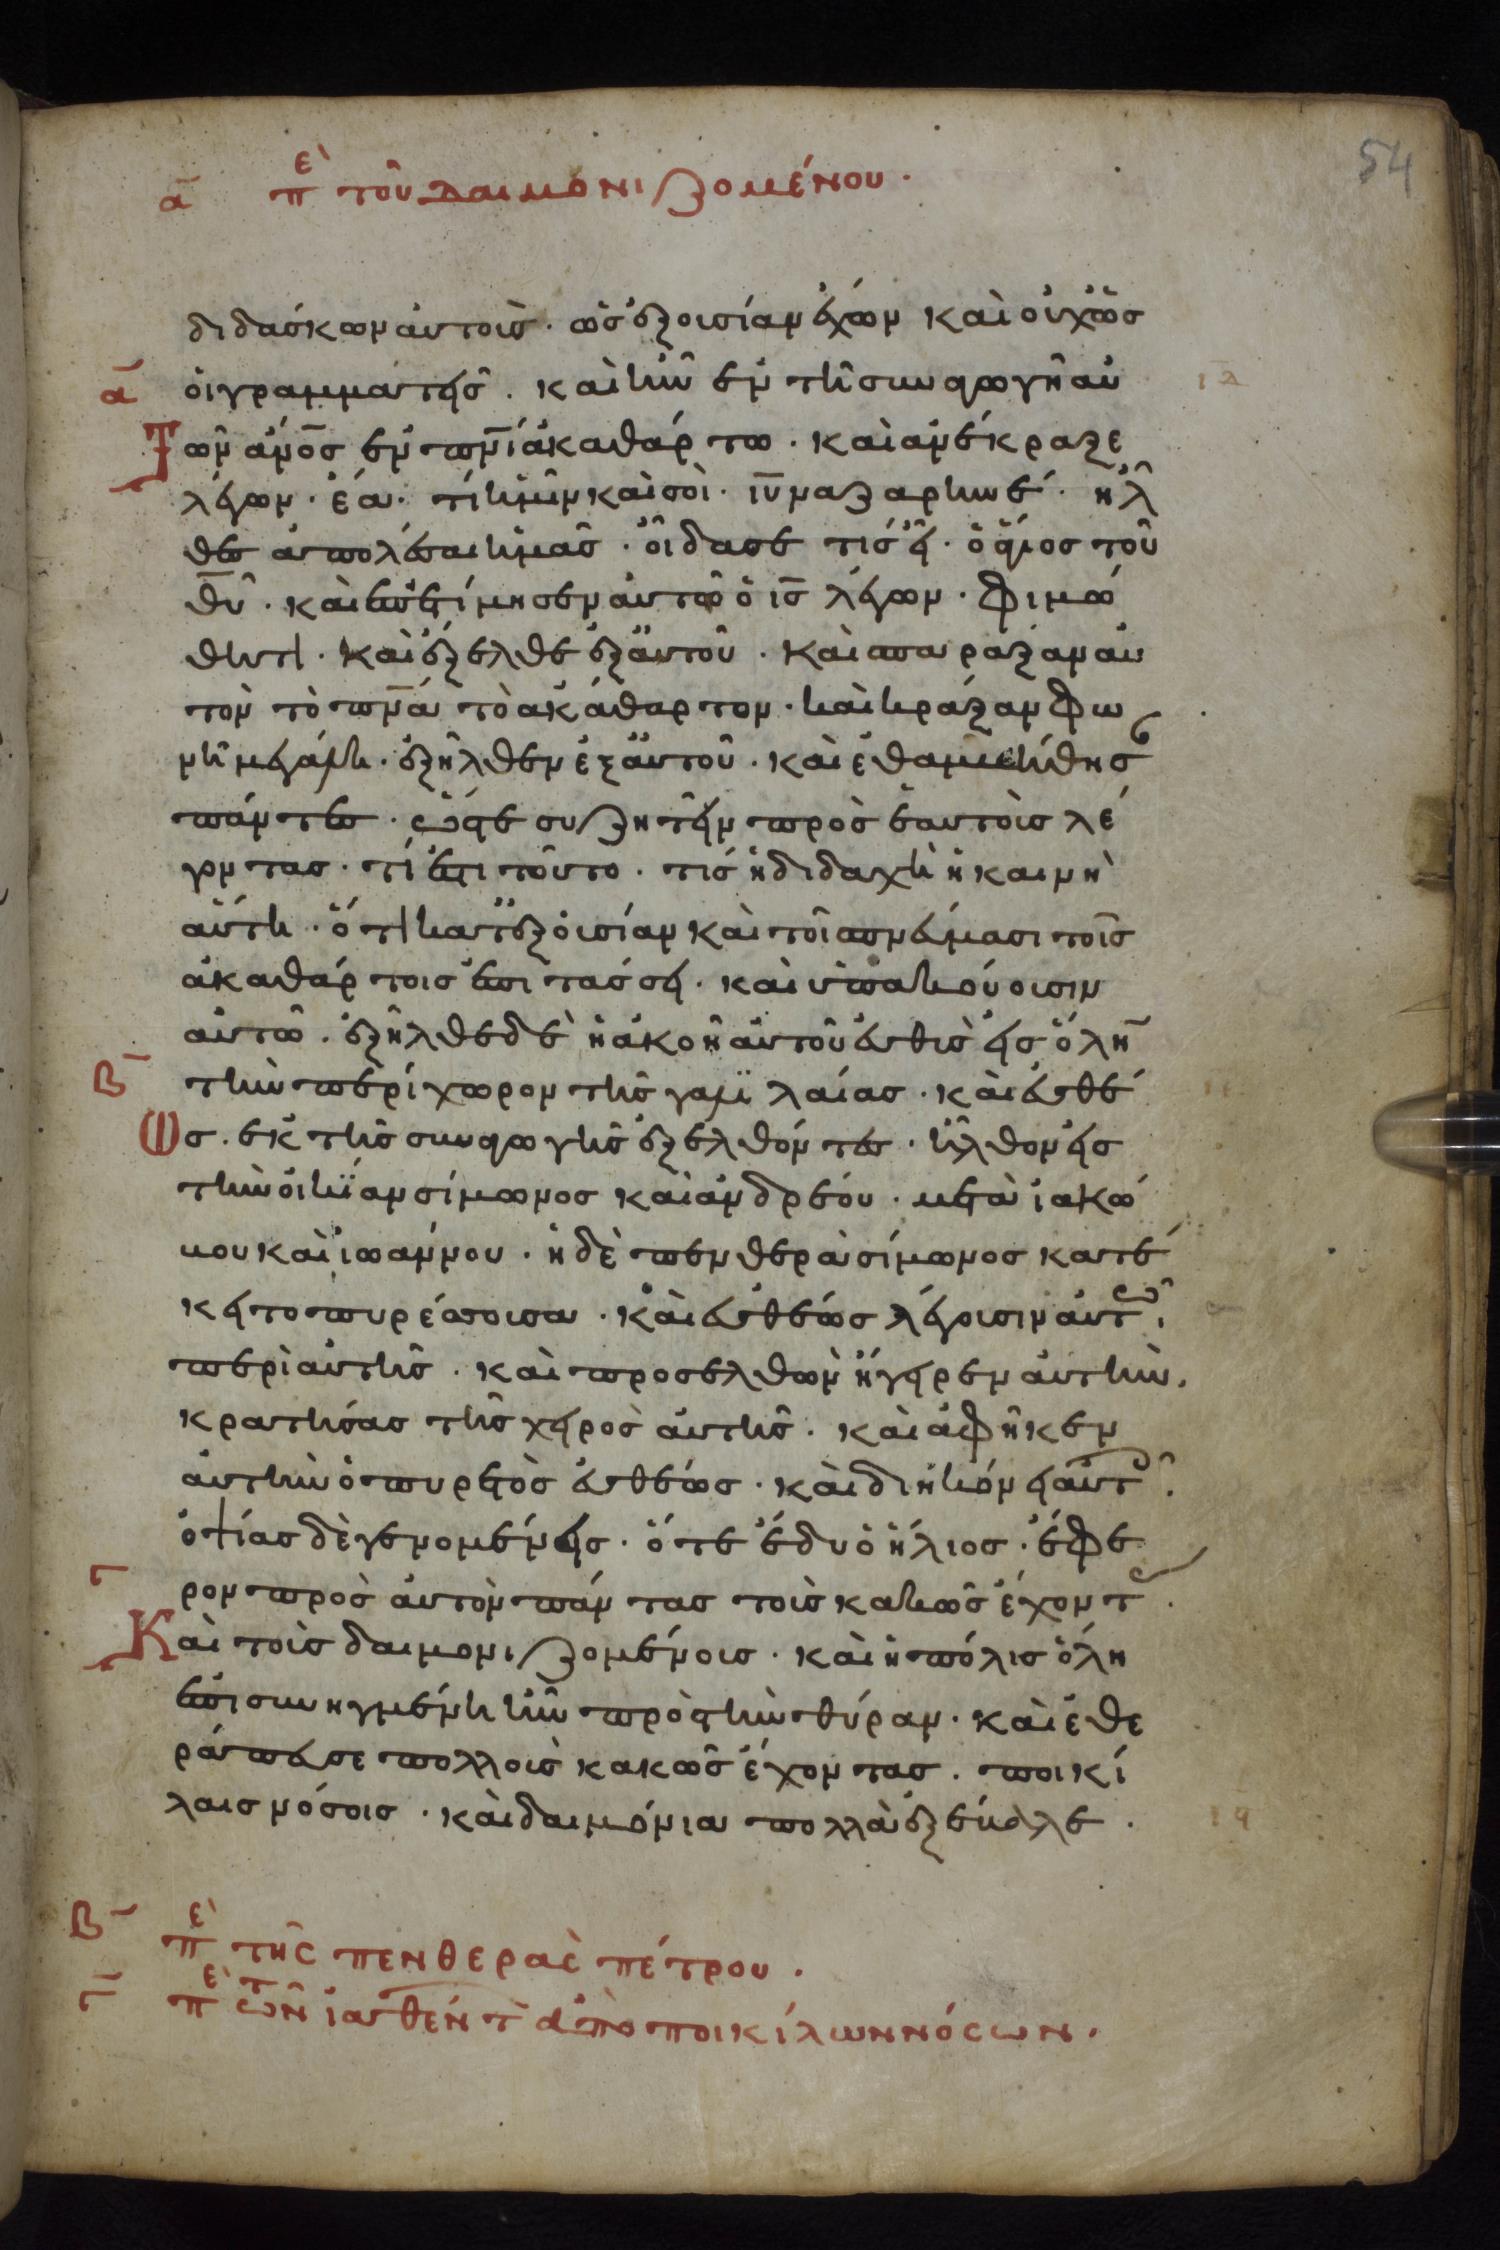 54
α πε τοῦ δαιμονιζομένου.
διδάσκων αὐτοὺς· ὡς ἐξουσίαν ἔχων καὶ οὐχ ὡς
α οἱ γραμματεῖς. καὶ ἦν ἐν τῇ συναγωγῇ αὐ
τῶν ἀνος ἐν πνι ἀκαθάρτω· καὶ ἀνέκραξε
λέγων· ἔα· τί ἡμῖν καὶ σοὶ· ιυ ναζαρηνέ· ἦλ
θες ἀπολέσαι ἡμᾶς· οἶδά σε τίς εἶ· ὁ ἅγιος τοῦ
θυ· καὶ ἐπετίμησεν αὐτῶ ὁ ις λέγων· φιμώ
θητι· καὶ ἔξελθε ἐξ αὐτοῦ· καὶ σπαράξαν αὐ
τὸν τὸ πνα τὸ ἀκάθαρτον· καὶ κράξαν φω
νῆ μεγάλη· ἐξῆλθεν ἐξ αὐτοῦ· καὶ ἐθαμβήθησ
πάντες· ὥστε συζητεῖν πρὸς ἑαυτοὺς λέ
γοντας· τί ἐστι τοῦτο· τίς ἡ διδαχὴ ἡ καινὴ
αὕτη· ὅτι κατ' ἐξουσίαν καὶ τοῖς πνεύμασι τοῖς
ἀκαθάρτοις ἐπιτάσσει· καὶ ὑπακούουσιν
αὐτῶ· ἐξῆλθε δὲ ἡ ἀκοὴ αὐτοῦ εὐθὺς εἰς ὅλην
β τὴν περίχωρον τῆς γαλιλαίας· καὶ εὐθέ
ως· ἐκ τῆς συναγωγῆς ἐξελθόντες· ἦλθον εἰς
τὴν οἰκίαν σίμωνος καὶ ἀνδρέου· μετὰ ἰακώ
βου καὶ ἰωάννου· ἡ δὲ πενθερὰ σίμωνος κατέ
κειτο πυρέσσουσα· καὶ εὐθέως λέγουσιν αὐτῶ
περὶ αὐτῆς· καὶ προσελθὼν ἤγειρεν αὐτὴν,
κρατήσας τῆς χειρὸς αὐτῆς· καὶ ἀφῆκεν
αὐτὴν ὁ πυρετὸς εὐθέως· καὶ διηκόνει αὐτοῖς.
ὀψίας δὲ γενομένης· ὅτε ἔδυ ὁ ἥλιος· ἔφε
γ ρον πρὸς αὐτὸν πάντας τοὺς κακῶς ἔχοντας.
Καὶ τοὺς δαιμονιζομένους· καὶ ἡ πόλις ὅλη
ἐπισυνηγμένη ἦν πρὸς τὴν θύραν· καὶ ἐθε
ράπευσε πολλοὺς κακῶς ἔχοντας· ποικί
λαις νόσοις· καὶ δαιμόνια πολλὰ ἐξέβαλε·
β πε τῆς πενθερᾶς πέτρου.
γ πε τῶν ἰαθέντ ἀπὸ ποικίλων νόσων.